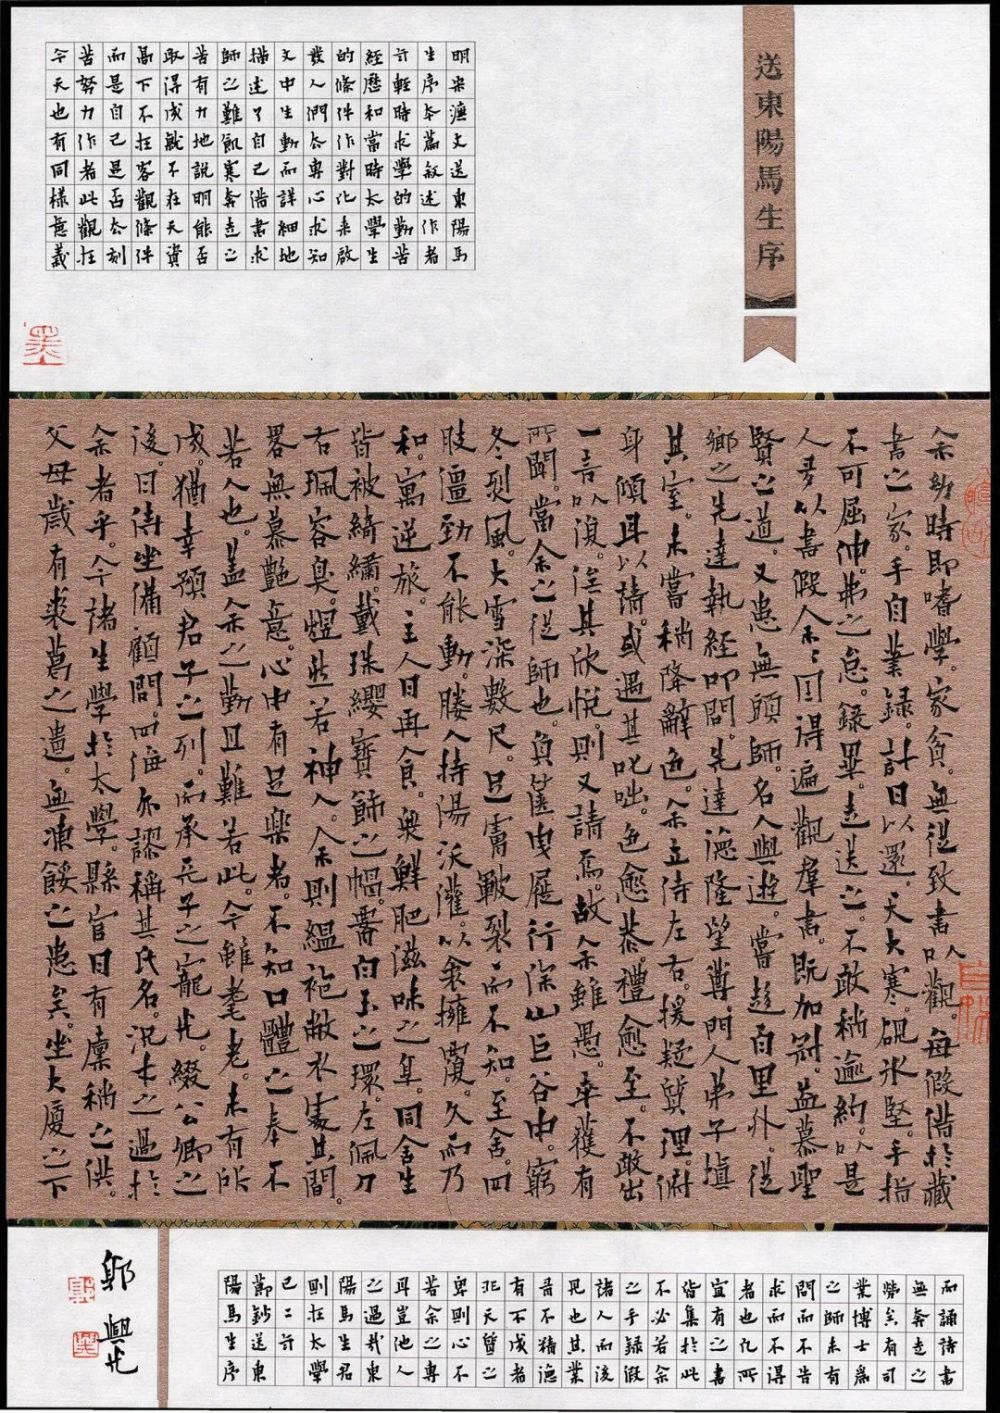 送東陽馬生序
明宋濂文送東陽馬
生序本篇叙述作者
年輕時求學的勤苦
經歷和當時太學生
的條件作對比来啟
發人們去專心求知
文中生動而詳細地
描述了自己借書求
師之難飢寒奔走之
苦有力地說明能否
取得成就不在天資
高下不在客觀條件
而是自己是否去刻
苦努力作者此觀在
今天也有同樣意義
余幼時即嗜學。家貧。無從致書以觀。每假借於藏
書之家。手自筆録。計日以還。天大寒。硯冰堅。手指
不可屈伸。弗之怠。錄畢。走送之。不敢稍逾約。以是
人多以書假余。余因得遍觀羣書。既加冠。益慕聖
賢之道。又患無碩師。名人與遊。嘗趍百里外。從
鄉之先達執經叩問。先達德隆望尊。門人弟子填
其室。未嘗稍降辭色。余立侍左右。援疑質理。俯
身傾耳以請。或遇其叱咄。色愈恭。禮愈至。不敢出
一言以復。俟其欣悅。則又請焉。故余雖愚。卒獲有
所聞。當余之從師也。負篋曳屣行深山巨谷中。窮
冬烈風。大雪深數尺。足膚皸裂而不知。至舍。四
肢僵勁不能動。媵人持湯沃灌。以衾擁覆。久而乃
和。寓逆旅。主人日再食。無鮮肥滋味之享。同舍生
皆被綺繡。戴珠纓寶飾之帽。腰白玉之環。左佩刀
右珮容臭。煜然若神人。余則縕袍敝衣處其間。
畧無慕艷意。心中有足樂者。不知口體之奉不
若人也。蓋余之勤且難若此。今雖耄老。未有所
成。猶幸預君子之列。而承天子之寵光。綴公卿之
後。日侍坐備顧問。四海亦謬稱其氏名。況才之過於
余者乎。今諸生學於太學。縣官日有廩稍之供。
父母歲有裘葛之遺。無凍餒之患矣。坐大廈之下
而誦詩書
無奔走之
勞矣有司
業博士為
之師未有
問而不告
求而不得
者也凡所
宜有之書
皆集於此
不必若余
之手録假
諸人而後
見也其業
有不精德
有不成者
非天質之
卑則心不
若余之專
耳豈他人
之過哉東
陽馬生君
則在太學
已二年
節鈔送東
陽馬生序